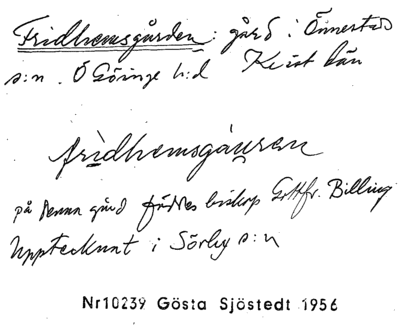 Fridhemsgården: gård i Önnestad
s:n. Ö Göinge h:d Krist län
fridhemsgåuren
på denna gård föddes biskop Gottfr. Billing
Upptecknat i Sörby s:n
Nr10239 Gösta Sjöstedt 1956